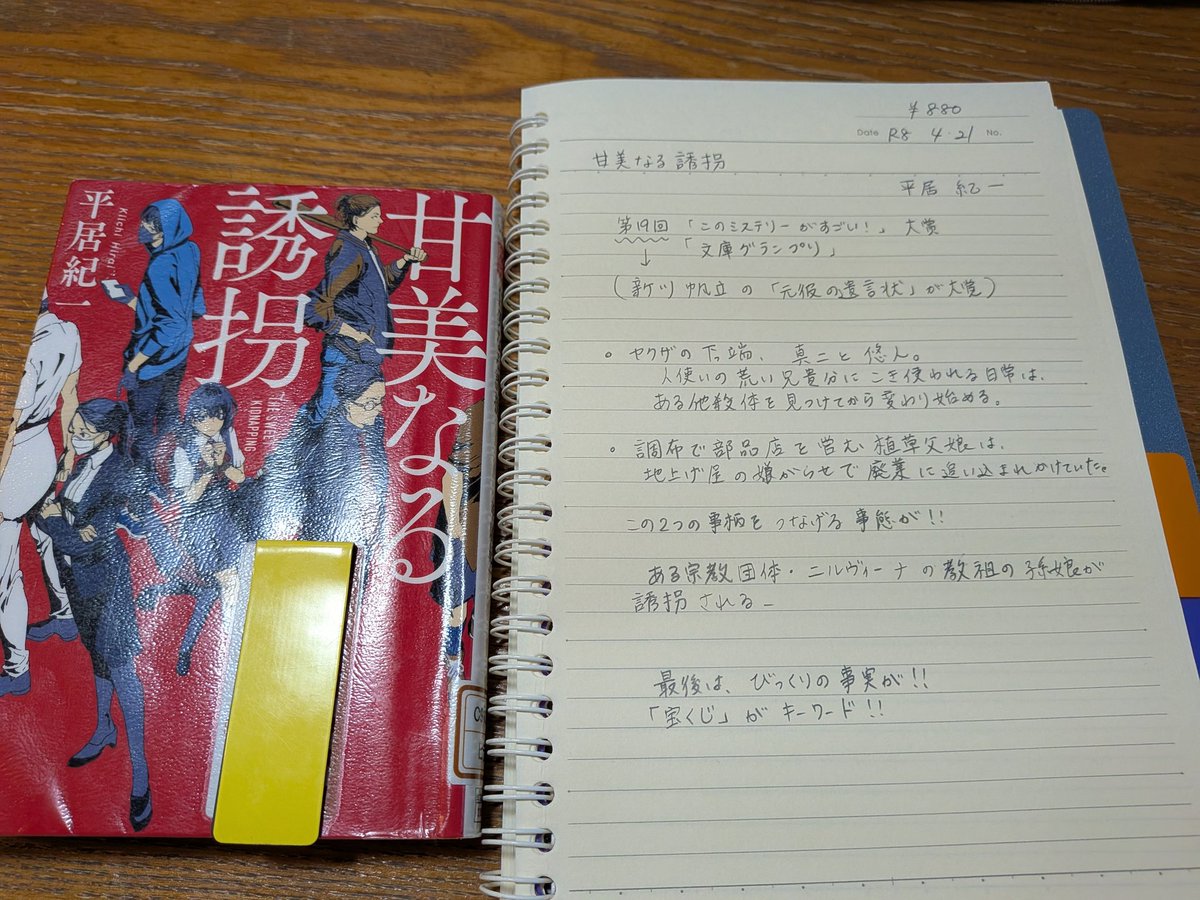 甘美なる
誘拐
平居紀一
Kiichi Hirai
THE SWEET
KIDNAPPING
¥880
Date R8 4・21 No.
甘美なる誘拐
平居 紀一
第19回 「このミステリーがすごい!」 大賞
↓ 「文庫グランプリ」
(新川帆立の「元彼の遺言状」が大賞)
○ ヤクザの下っ端、真二と悠人。
人使いの荒い兄貴分にこき使われる日常は、
ある他殺体を見つけてから変わり始める。
○ 調布で部品店を営む植草父娘は、
地上げ屋の嫌がらせで廃業に追い込まれかけていた。
この2つの事柄をつなげる事態が!!
ある宗教団体・ニルヴィーナの教祖の孫娘が
誘拐される_
最後は、びっくりの事実が!!
「宝くじ」がキーワード!!